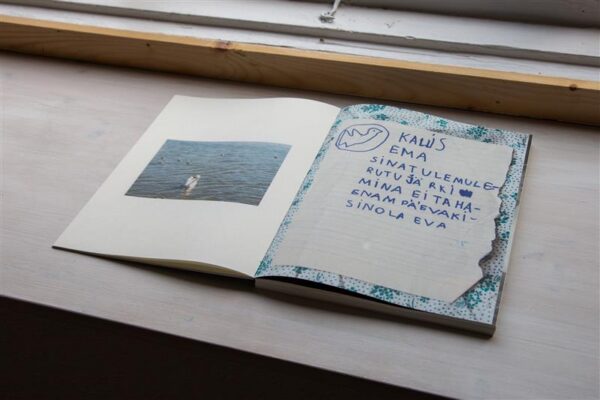 KALLIS
EMA
SINATULEMULE-
RUTU JÄRKI
MINA EITAHA-
ENAM PÄEVAKI-
SINOLA EVA